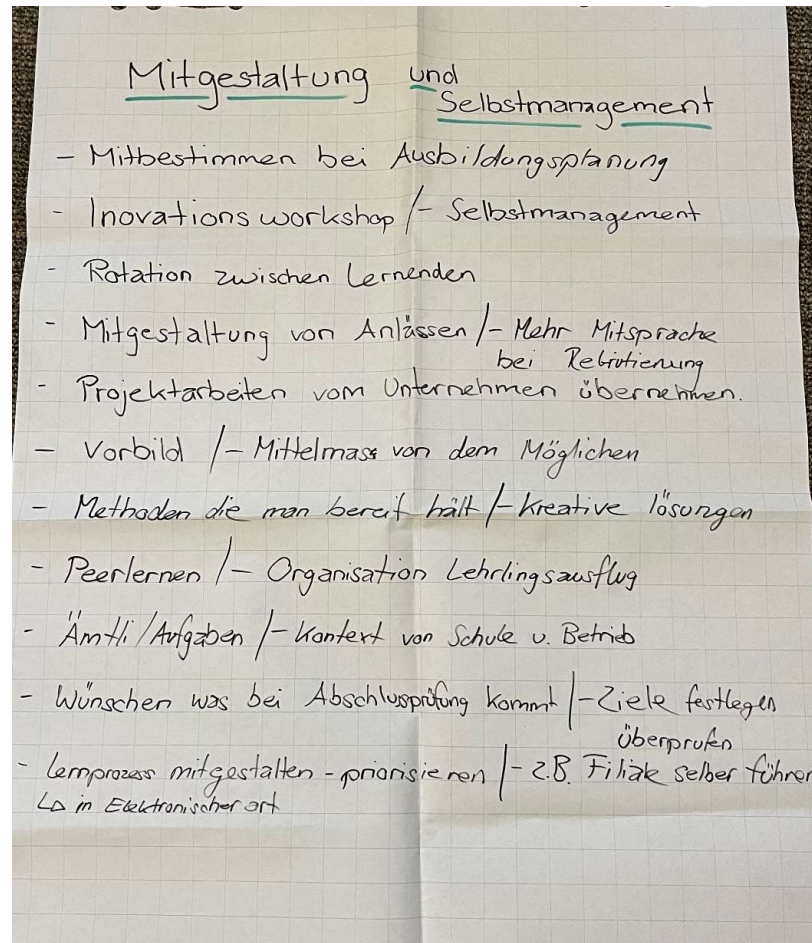 Mitgestaltung und
Selbstmanagement
- Mitbestimmen bei Ausbildungsplanung
- Inovationsworkshop / - Selbstmanagement
- Rotation zwischen Lernenden
- Mitgestaltung von Anlässen / - Mehr Mitsprache
bei Rekrutierung
- Projektarbeiten vom Unternehmen übernehmen.
- Vorbild / - Mittelmass von dem Möglichen
- Methoden die man bereit hält / - Kreative lösungen
- Peerlernen / - Organisation Lehrlingsausflug
- Ämtli / Aufgaben / - Kontext von Schule u. Betrieb
- Wünschen was bei Abschlussprüfung kommt / - Ziele festlegen
überprufen
- Lernprozess mitgestalten - priorisieren / - z.B. Filiale selber führen
↳ in Elektronischer ort